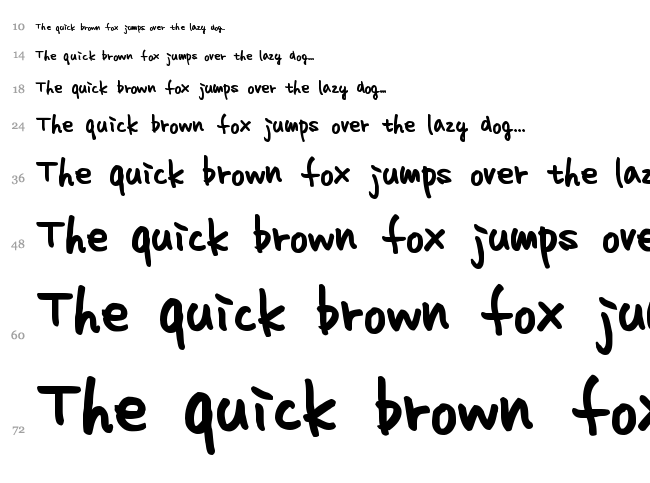 10 The quick brown fox jumps over the lazy dog...
14 The quick brown fox jumps over the lazy dog...
18 The quick brown fox jumps over the lazy dog...
24 The quick brown fox jumps over the lazy dog...
36 The quick brown fox jumps over the laz
48 The quick brown fox jumps ove
60 The quick brown fox ju
72 The quick brown fox